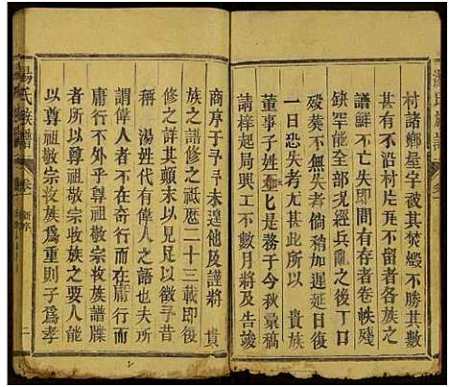 村諸鄉星宇被其焚燬不勝其數
甚有不沿村片瓦不留者各族之
譜鮮不亡失即間有存者卷帙殘
缺罕能全部況經兵亂之後丁口
死葬不無失者倘稍加遲延日後
一日恐失考尤甚此所以 貴族
董事子姓是務于今秋彙稿
請梓起局興工不數月將及告竣
商序于予予未遑他及謹將 貴
族之譜修之祗歷二十三載即後
修之詳其顛末以見以徵予昔
稱 湯姓代有偉人之語也夫所
謂偉人者不在奇行而在庸行而
庸行不外乎尊祖敬宗收族譜牒
者所以尊祖敬宗收族之要人能
以尊祖敬宗收族為重則子為孝
湯氏族譜 卷一 新序 二